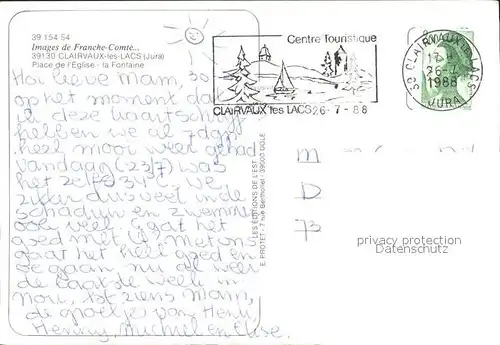 39 154 54
Images de Franche-Comté...
39130 CLAIRVAUX-les-LACS (Jura)
Place de l'Église - la Fontaine
Hoi lieve Mam, 30
op het moment dat
ik deze kaart schrijf
hebben we al 7 dagen
heel mooi weer gehad
Vandaag (23/7) was
het zelfs 34°C. We
zitten dus veel in de
schaduw en zwemmen
ook veel. gaat het
goed met U, met ons
gaat het heel goed en
we gaan nu al weer
de laatste week in
Nou, tot ziens Mam,
de groetjes van Henk,
Henny, Michiel en Elise.
LES ÉDITIONS DE L'EST
E. PROTET - 7, rue Berthollet - 39000 DOLE
Centre Touristique
CLAIRVAUX les LACS 26-7-88
39 CLAIRVAUX-les-LACS
26-7
1988
JURA
M
D
73
privacy protection
Datenschutz